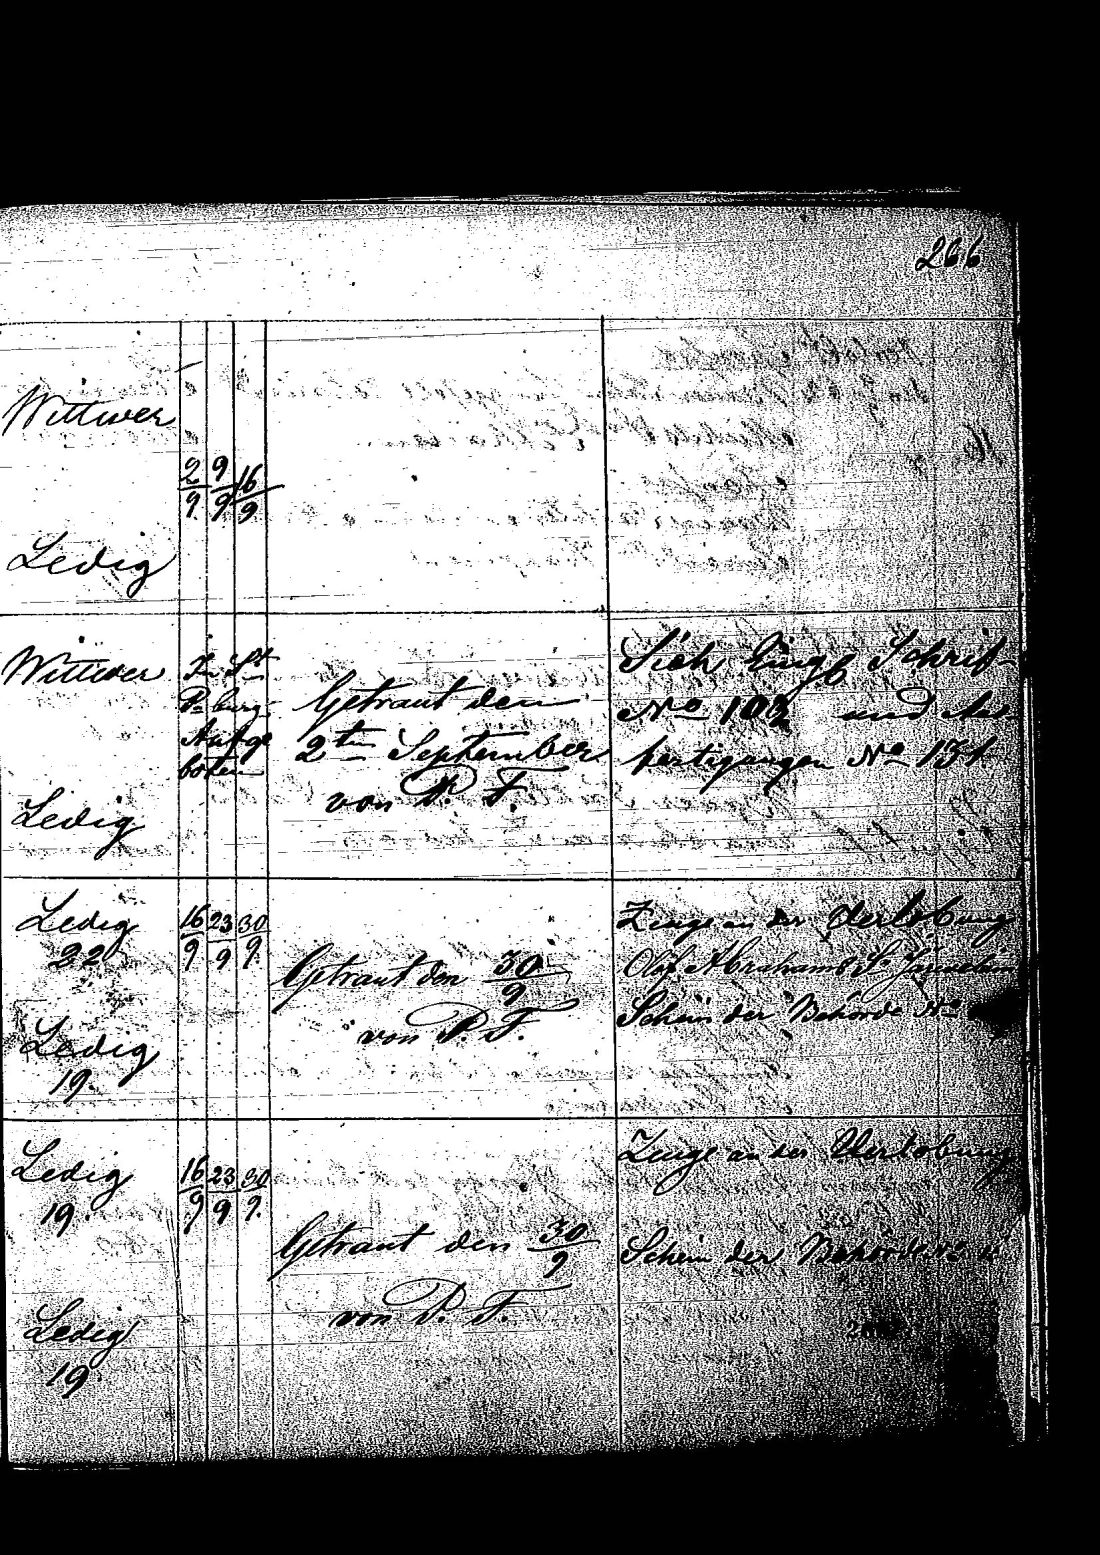 266
Wittwer
2/9 9/9 16/9
Ledig
Wittwer
In St
P-burg
Aufge
boten
Getraut den
2ten September
von P. F.
Sieh Eing. Schrif-
No 103 und Aus
fertigungen No 131
Ledig
Ledig
22
16/9 23/9 30/9.
Getraut den 30/9
von P. F.
Zeuge an der Verlobung
Olaf Abrahams S.
Schein der Behörde No
Ledig
19.
Ledig
19.
16/9 23/9 30/9.
Getraut den 30/9
von P. F.
Zeuge an der Verlobung
Schein der Behörde No
Ledig
19.